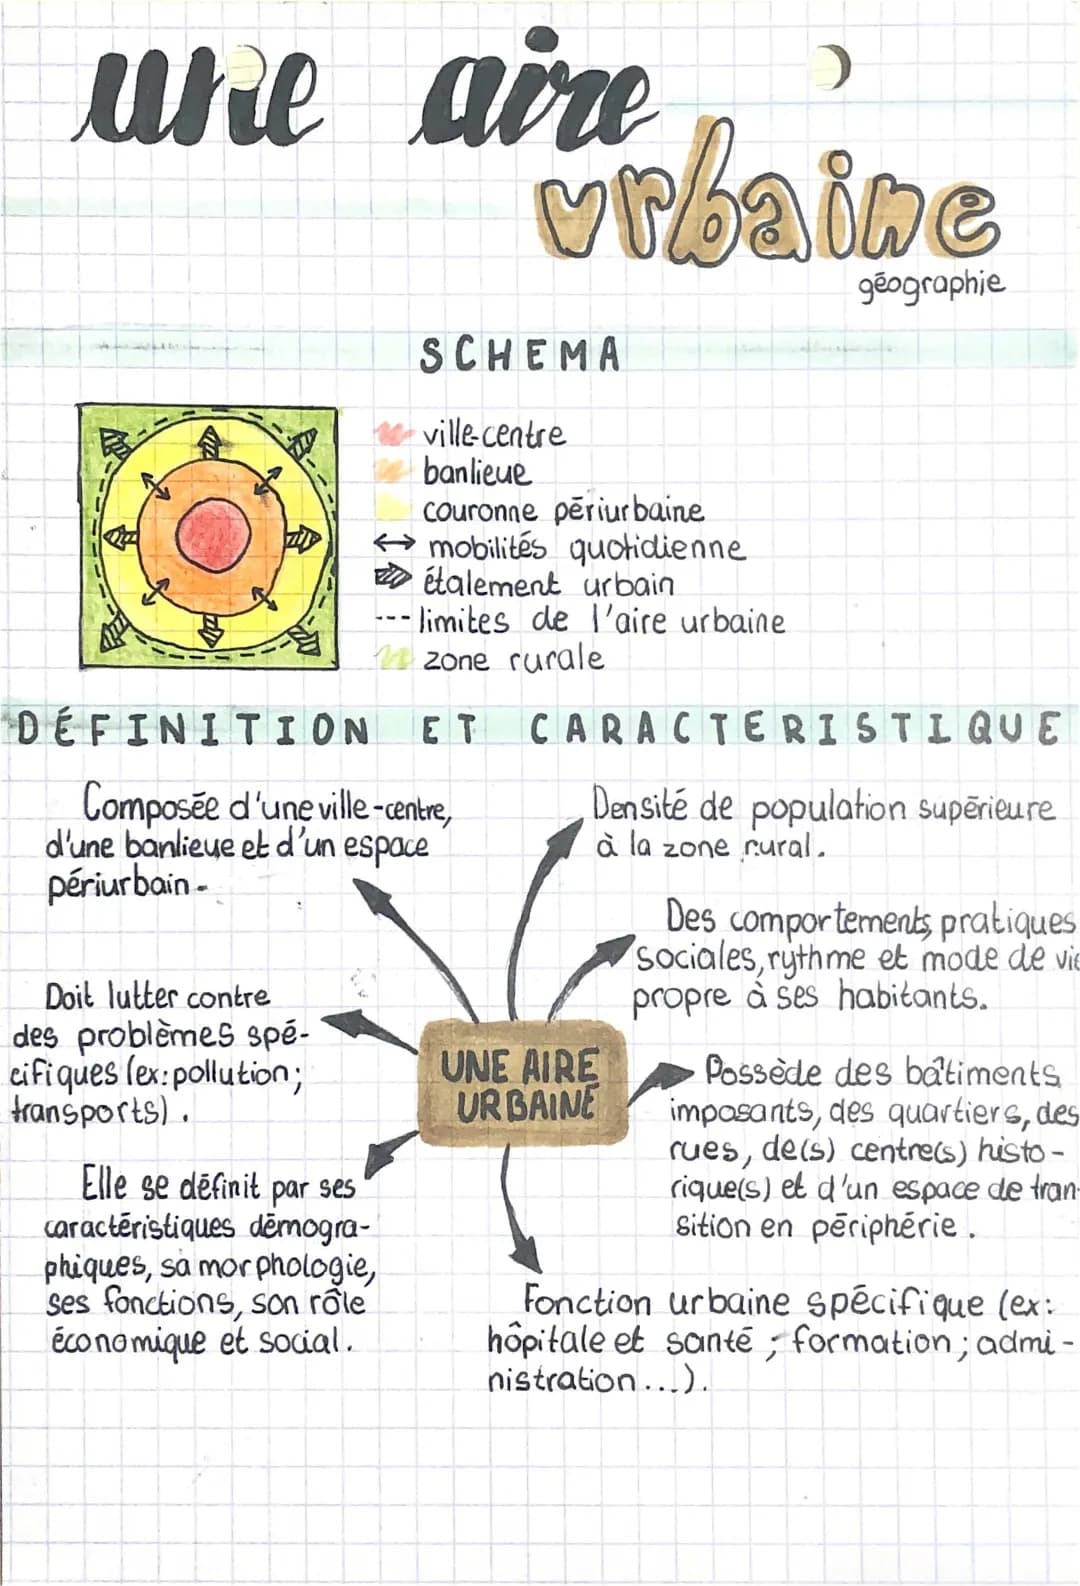 une aire
urbaine
géographie
SCHEMA
ville-centre
banlieue
couronne périurbaine
↔ mobilités quotidienne
étalement urbain
--- limites de l'aire urbaine
zone rurale
DÉFINITION ET CARACTERISTIQUE
Composée d'une ville-centre,
d'une banlieue et d'un espace
périurbain.
Densité de population supérieure
à la zone rural.
Des comportements, pratiques
sociales, rythme et mode de vie
propre à ses habitants.
Doit lutter contre
des problèmes spé-
cifiques (ex: pollution;
transports).
UNE AIRE
URBAINE
Possède des bâtiments
imposants, des quartiers, des
rues, de(s) centre(s) histo-
rique(s) et d'un espace de tran-
sition en périphérie.
Elle se définit par ses
caractéristiques démogra-
phiques, sa morphologie,
ses fonctions, son rôle
économique et social.
Fonction urbaine spécifique (ex:
hôpitale et santé ; formation ; admi-
nistration...).